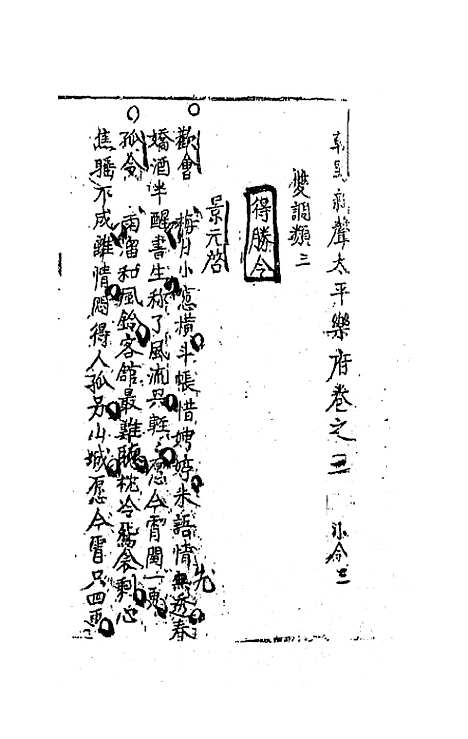 朝野新聲太平樂府卷之三 小令三
雙調類三
得勝令
景元啓 先
歡會 梅月小窓橫斗帳惜娉婷未語情無透春
嬌酒半醒書生称了風流興輕輕愿今霄閏一更
孤令 雨溜和風鈴客館最難聽枕冷鴛衾剩心
焦睡不成離情悶得人孤另山城愿今霄只四更